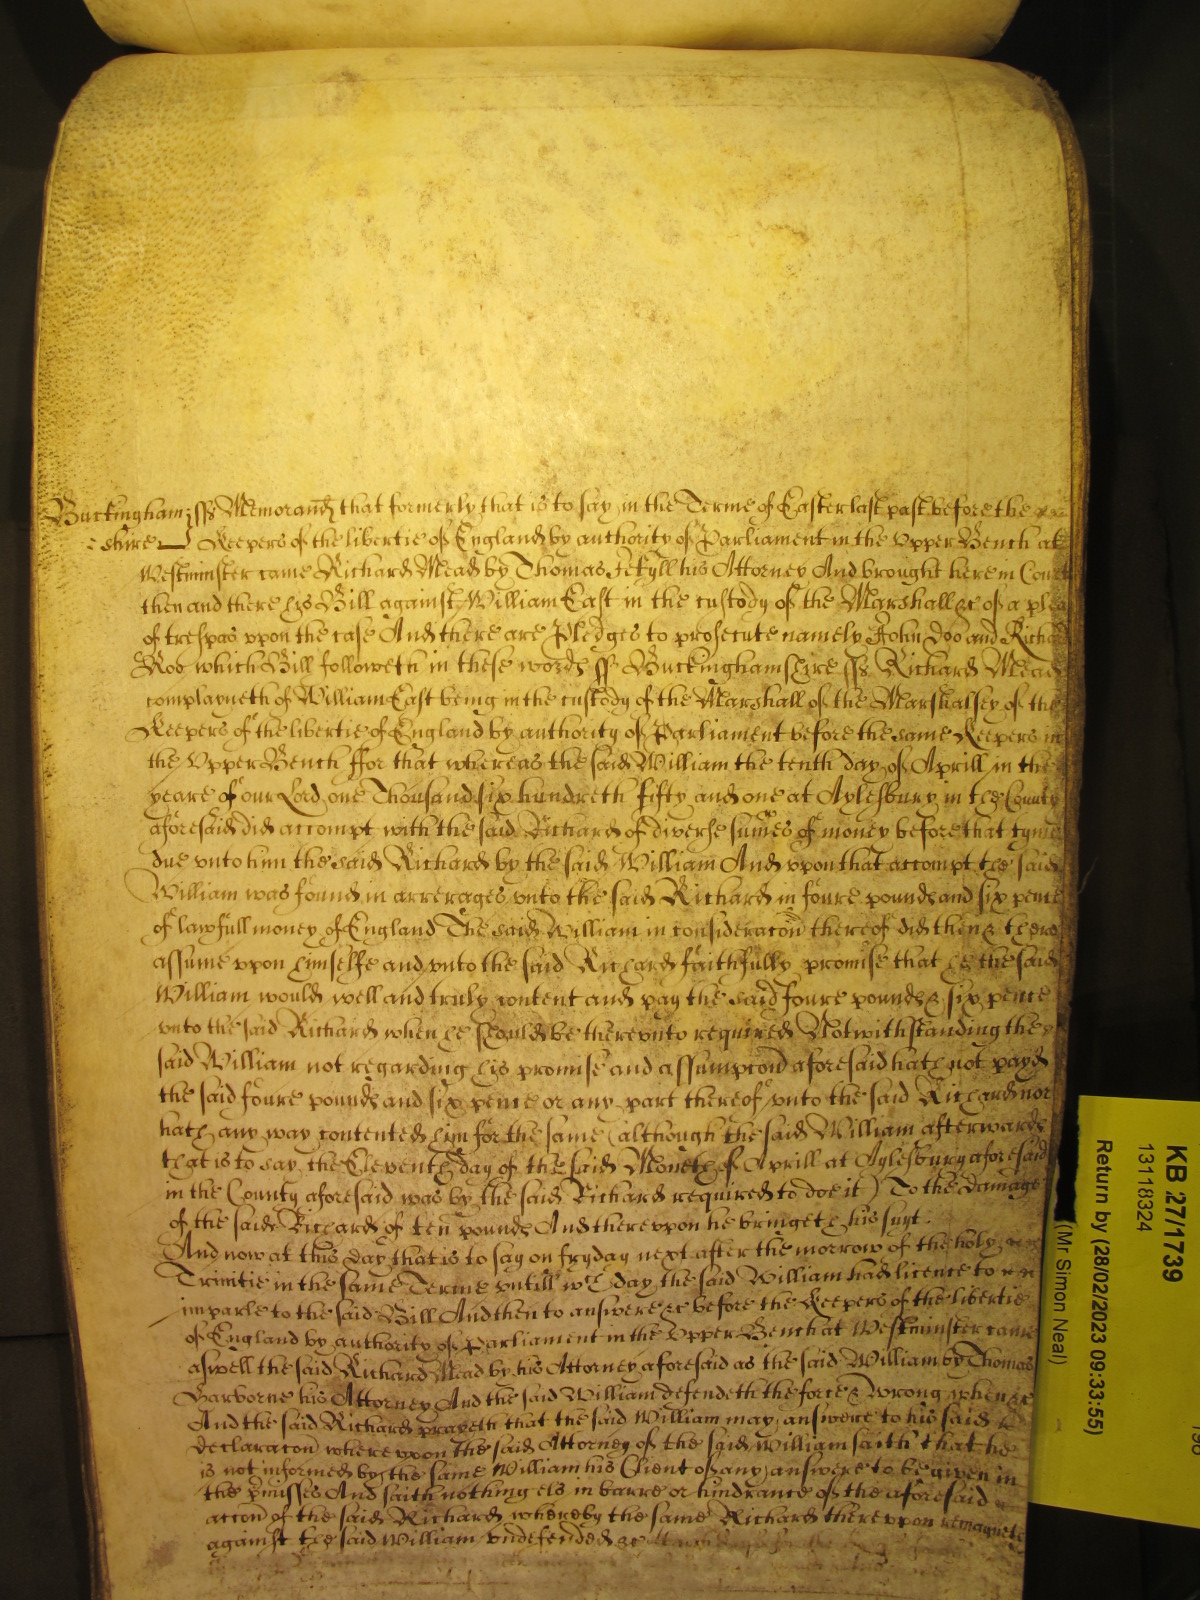 Buckingham ss Memorand that formerly that is to say in the Terme of Easter last past before the
shire Keepers of the libertie of England by authority of Parliament in the Upper Bench at
Westminster came Richard Mead by Thomas Jekyll his Attorney And brought here in Court
then and there his Bill against William East in the custody of the Marshall &c of a plea
of trespas upon the case And there are Pledges to prosecute namely John Doo and Richard
Roo which Bill followeth in these words ss Buckinghamshire ss Richard Mead
complayneth of William East being in the custody of the Marshall of the Marshalsey of the
Keepers of the libertie of England by authority of Parliament before the same Keepers in
the Upper Bench ffor that whereas the said William the tenth day of Aprill in the
yeare of our Lord one Thousand six hundreth fifty and one at Aylesbury in the County
aforesaid did accompt with the said Richard of diverse sumes of money before that tyme
due unto him the said Richard by the said William And upon that accompt the said
William was found in arrerages unto the said Richard in foure pounds and six pence
of lawfull money of England The said William in consideracon thereof did then & there
assume upon himselfe and unto the said Richard faithfully promise that he the said
William would well and truly content and pay the said foure pounds & six pence
unto the said Richard when he should be thereunto required Notwithstanding the
said William not regarding his promise and assumpcon aforesaid hath not payd
the said foure pounds and six pence or any part thereof unto the said Richard nor
hath any way contented him for the same (although the said William afterwards
that is to say the Eleventh day of the said Moneth of Aprill at Aylesbury aforesaid
in the County aforesaid was by the said Richard required to doe it) To the damage
of the said Richard of ten pounds And thereupon he bringeth his suyt.
And now at this day that is to say on fryday next after the morrow of the holy
Trinitie in the same Terme untill wch day the said William had licence to
imparle to the said Bill And then to answere &c before the Keepers of the libertie
of England by authority of Parliament in the Upper Bench at Westminster came
aswell the said Richard Mead by his Attorney aforesaid as the said William by Thomas
Harborne his Attorney And the said William defendeth the force & wrong when &c
And the said Richard prayeth that the said William may answere to his said
declaracon whereupon the said Attorney of the said William saith that he
is not informed by the same William his Client of any answere to be given in
the pmisses And saith nothing els in barre or hindrance of the aforesaid
accon of the said Richard whereby the same Richard thereupon remayneth
against the said William undefended &c
KB 27/1739
13118324
Return by (28/02/2023 09:33:55)
(Mr Simon Neal)